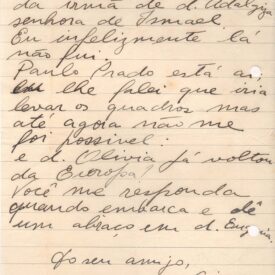 da irmã de d. Adalgiza
senhora de Ismael.
Eu infelizmente lá
não fui.
Paulo Prado está ai
eu lhe falei que iria
levar os quadros mas
até agora não me
foi possivel.
e d. Olivia já voltou
da Europa?
Você me responda
quando embarca e dê
um abraço em d. Eugenia.
Do seu amigo,